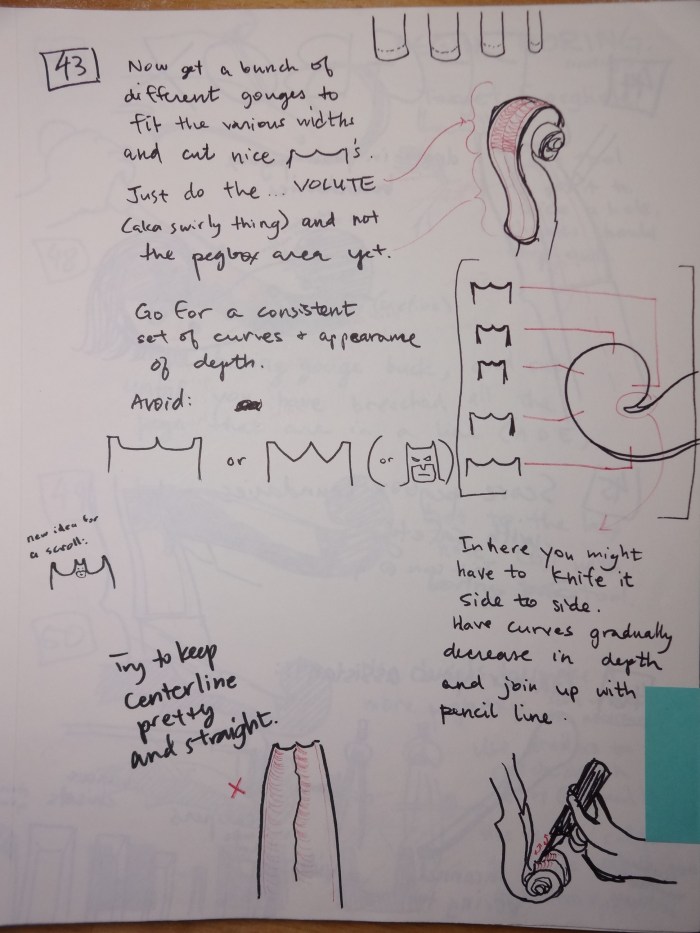 43
Now get a bunch of
different gouges to
fit the various widths
and cut nice 's.
Just do the... VOLUTE
(aka swirly thing) and not
the pegbox area yet.
Go for a consistent
set of curves + appearance
of depth.
Avoid:
or
(or )
new idea for
a scroll:
In here you might
have to knife it
side to side.
Have curves gradually
decrease in depth
and join up with
pencil line.
Try to keep
centerline
pretty
and straight.